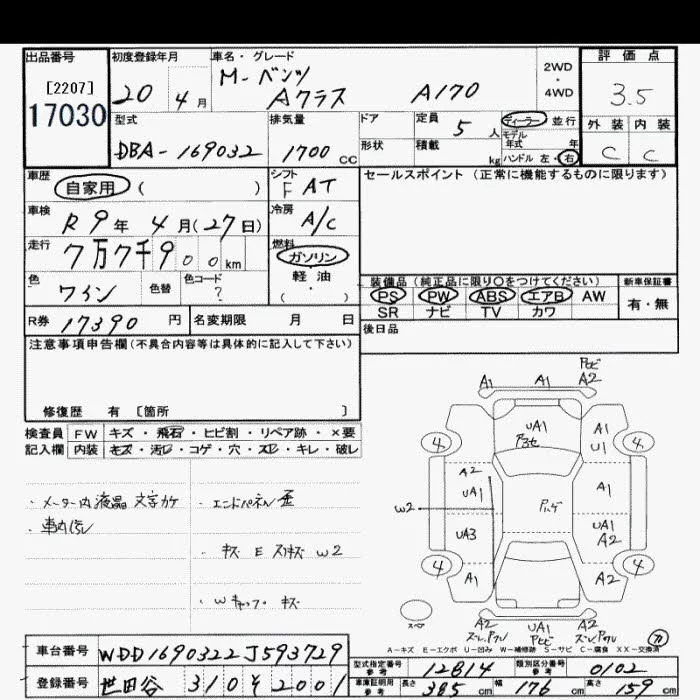 出品番号
[2207]
17030
初度登録年月
20 4月
車名・グレード
M-ベンツ
Aクラス A170
2WD
・
4WD
評価点
3.5
外装 内装
C C
型式
DBA-169032
排気量
1700 CC
ドア
形状
定員
5 人
積載
kg
ディーラー 並行
モデル
年式 年
ハンドル 左・右
車歴
自家用 ( )
シフト
F AT
車検
R9年 4月(27日)
冷房
A/C
走行
7万7千900km
燃料
ガソリン
軽油
( ・ )
色
ワイン
色替
色コード
?
セールスポイント(正常に機能するものに限ります)
装備品(純正品に限り○をつけてください)
PS PW ABS エアB AW
SR ナビ TV カワ
新車保証書
有・無
後日品
R券 17390 円
名変期限 月 日
注意事項申告欄(不具合内容等は具体的に記入して下さい)
修復歴 有 [箇所 ]
検査員
記入欄
FW キズ・飛石・ヒビ割・リペア跡・×要
内装 キズ・汚レ・コゲ・穴・スレ・キレ・破レ
・メーター内液晶文字カケ
・エンドパネル歪
・キズ E スリキズ W2
・Wキャップ キズ
A1 A1 A2
UA1
A1
U1
4 4
A2
UA1
A1
W2
UA3
UA1
A2
4 4
A1
A2
A2 UA1 A2
A-キズ E-エクボ U-凹み W-補修跡 S-サビ C-腐食 XX-交換済
車台番号 WDD1690322J593729
登録番号 世田谷 310 ソ 2001
型式指定番号
参考
12814
類別区分番号
参考
0102
車庫証明用
参考
長さ 385 cm 幅 176 cm 高さ 159 cm